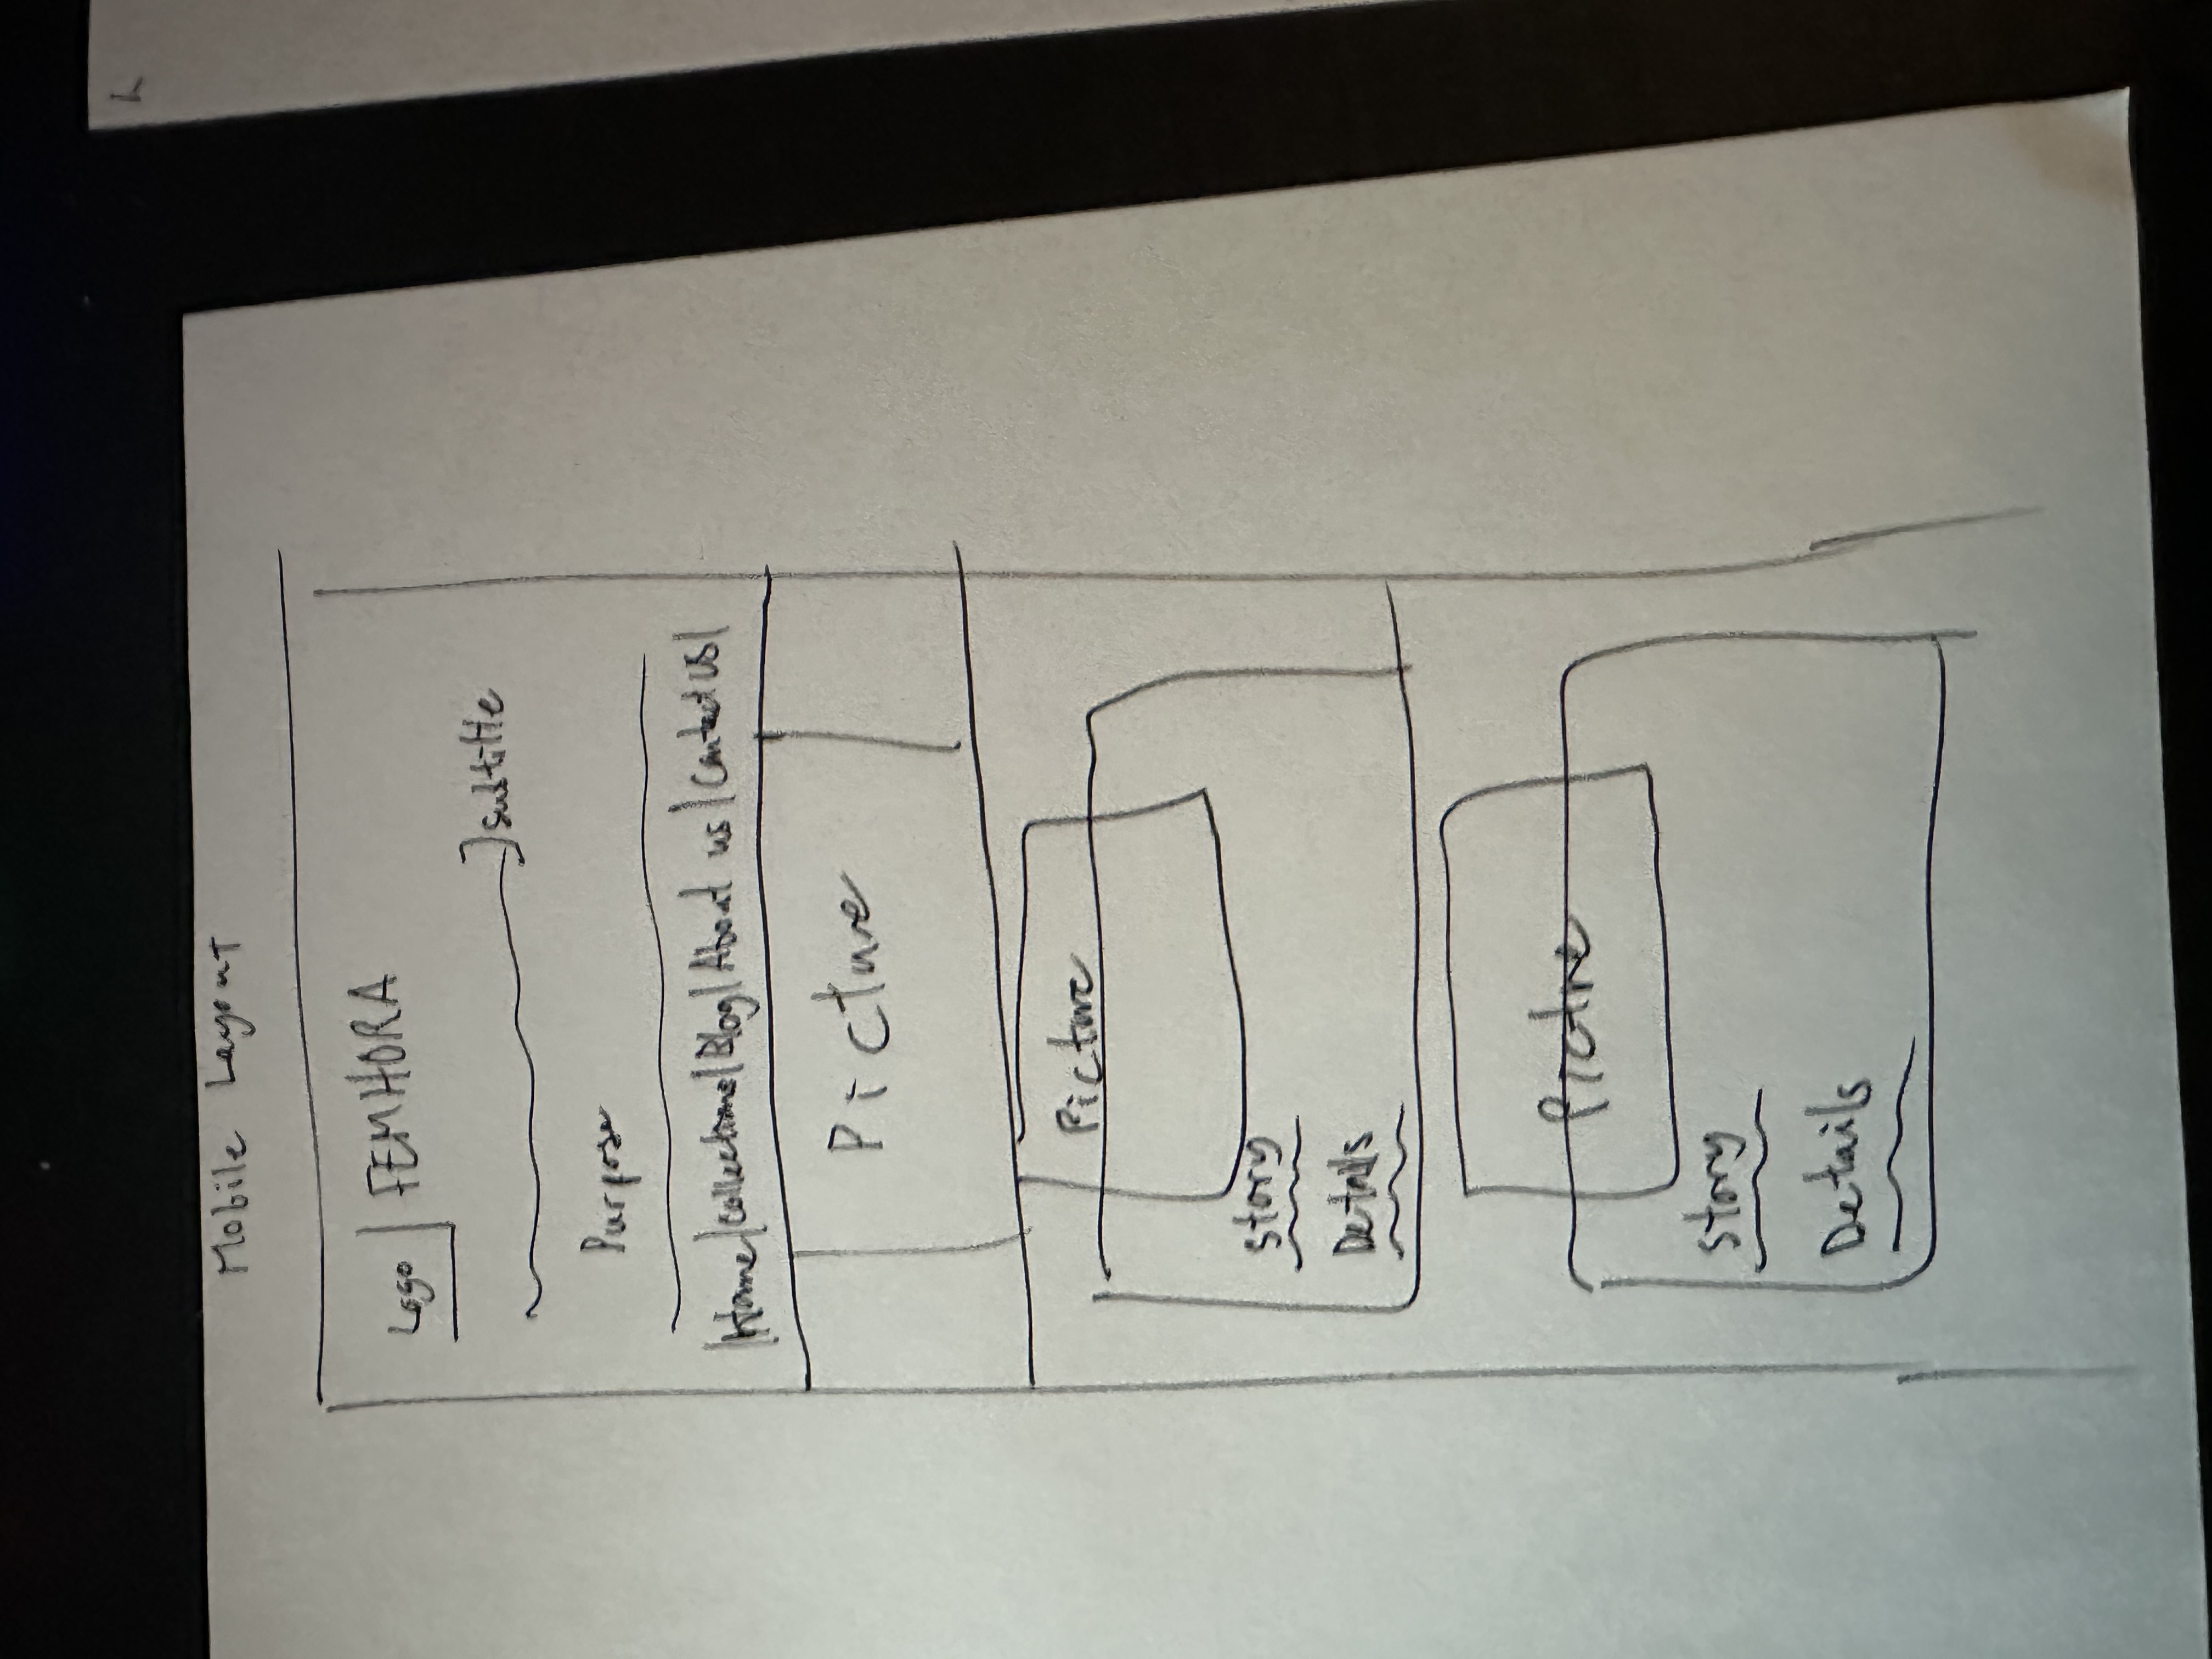 Mobile Layout
Logo FEMHORA
subtitle
Purpose
|Home|Collections|Blog|About us|Contact US|
Picture
Picture
story
Details
Pictue
story
Details
L